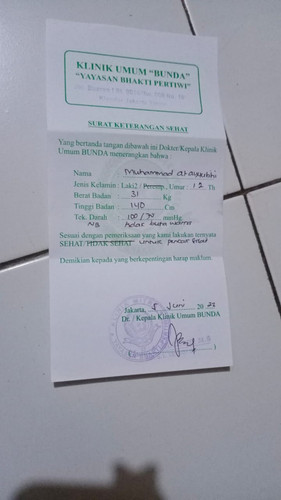 KLINIK UMUM "BUNDA"
"YAYASAN BHAKTI PERTIWI"
SURAT KETERANGAN SEHAT
Yang bertanda tangan dibawah ini Dokter/Kepala Klinik
Umum BUNDA menerangkan bahwa
Nama : Muhammad
Jenis Kelamin : Laki2 / Peremp, Umur : 12 Th
Berat Badan : 31 Kg
Tinggi Badan : 140 Cm
Tek. Darah : 100/70 mmHg
NB tidak buta warna
Sesuai dengan pemeriksaan yang kami lakukan ternyata
SEHAT/TIDAK SEHAT untuk pencat silat
Demikian kepada yang berkepentingan harap maklum.
Jakarta, 5 Juni 2023
Dr. / Kepala Klinik Umum BUNDA